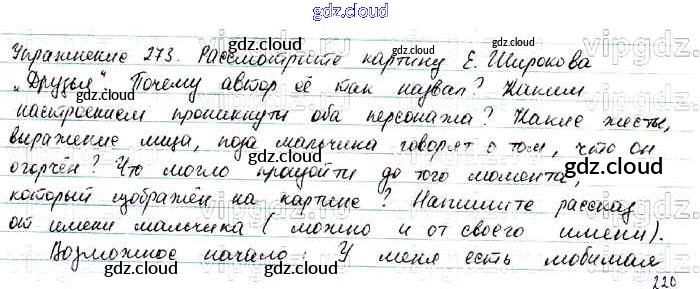 gdz.cloud
Упражнение 273. Рассмотрите картину Е. Широкова
„Друзья“ Почему автор её так назвал? Каким
настроением проникнуты оба персонажа? Какие жесты,
выражение лица, поза мальчика говорят о том, что он
огорчён? Что могло пройзойти до того момента,
который изображён на картине? Напишите рассказ
от имени мальчика (можно и от своего имени).
Возможное начало: У меня есть любимая
gdz.cloud
220